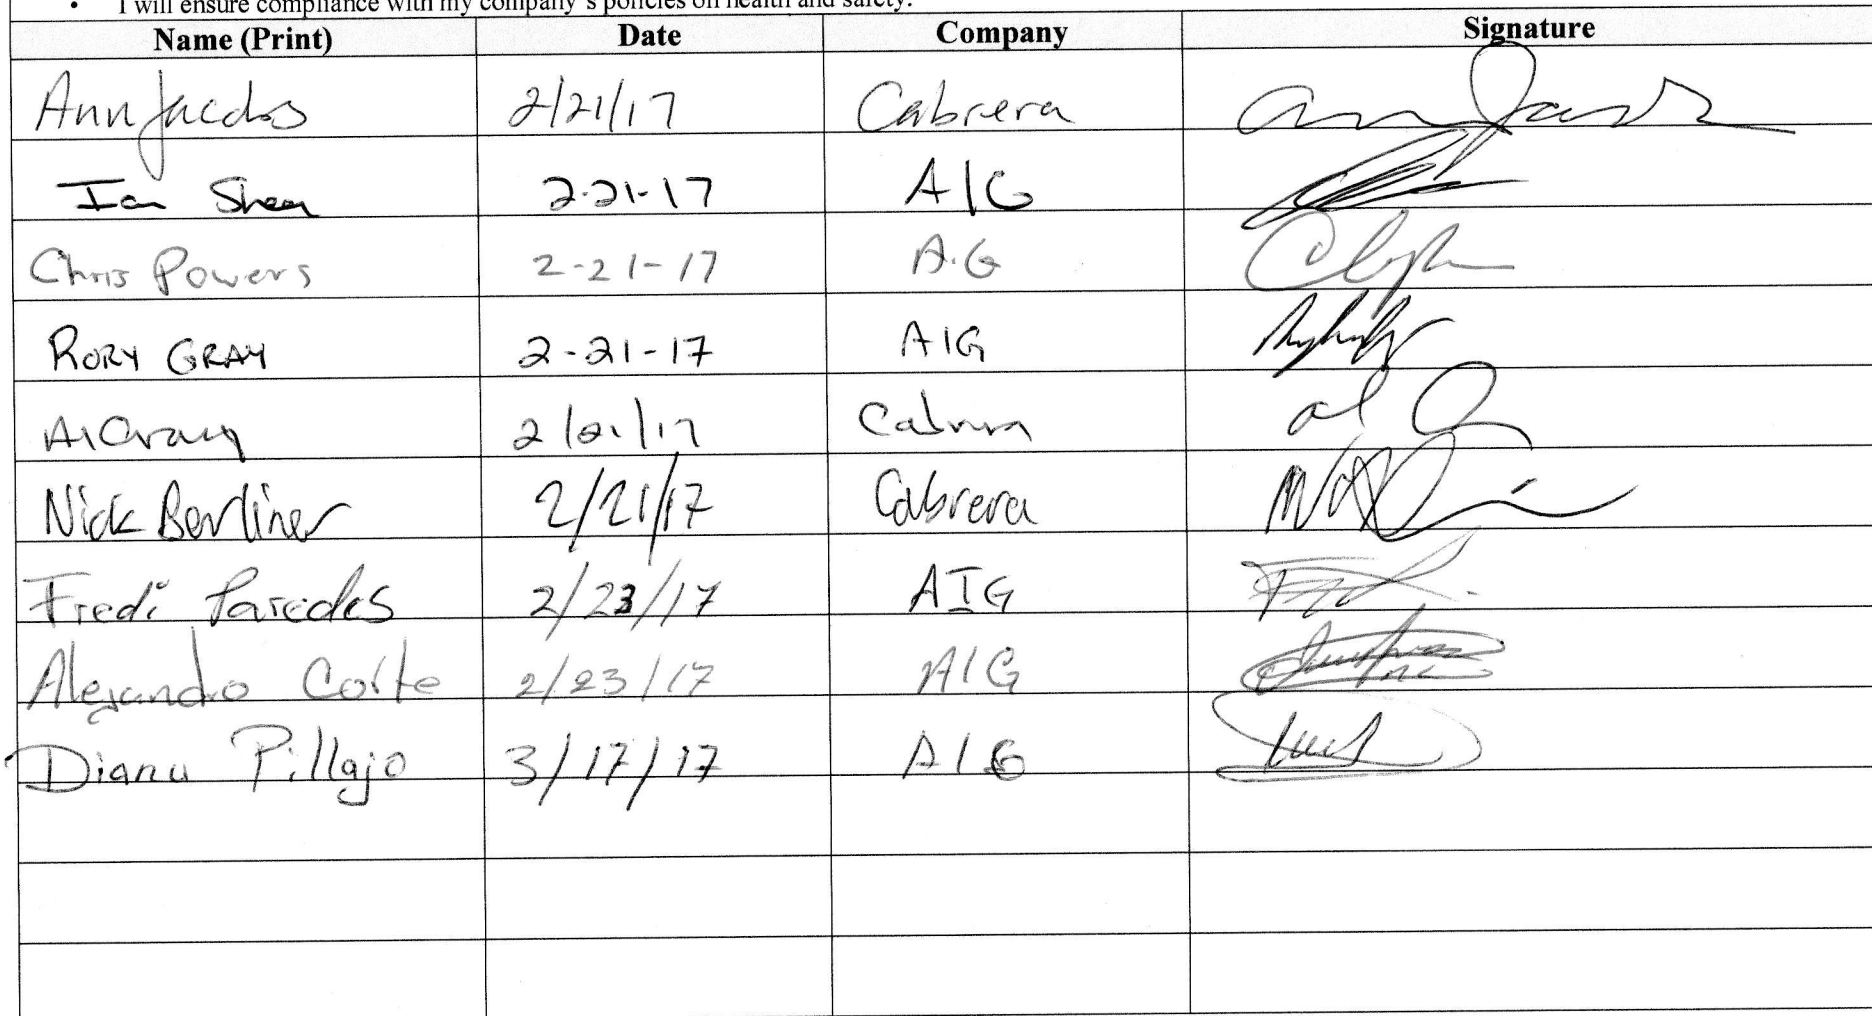 • I will ensure compliance with my company's policies on health and safety.
Name (Print) Date Company Signature
Ann Jacobs 2/21/17 Cabrera
Ian Shea 2-21-17 AIG
Chris Powers 2-21-17 A.G
RORY GRAY 2-21-17 AIG
Al Craig 2/21/17 Cabrera
Nick Berliner 2/21/17 Cabrera
Fredi Paredes 2/23/17 AIG
Alejandro Corte 2/23/17 AIG
Diana Pillajo 3/17/17 AIG